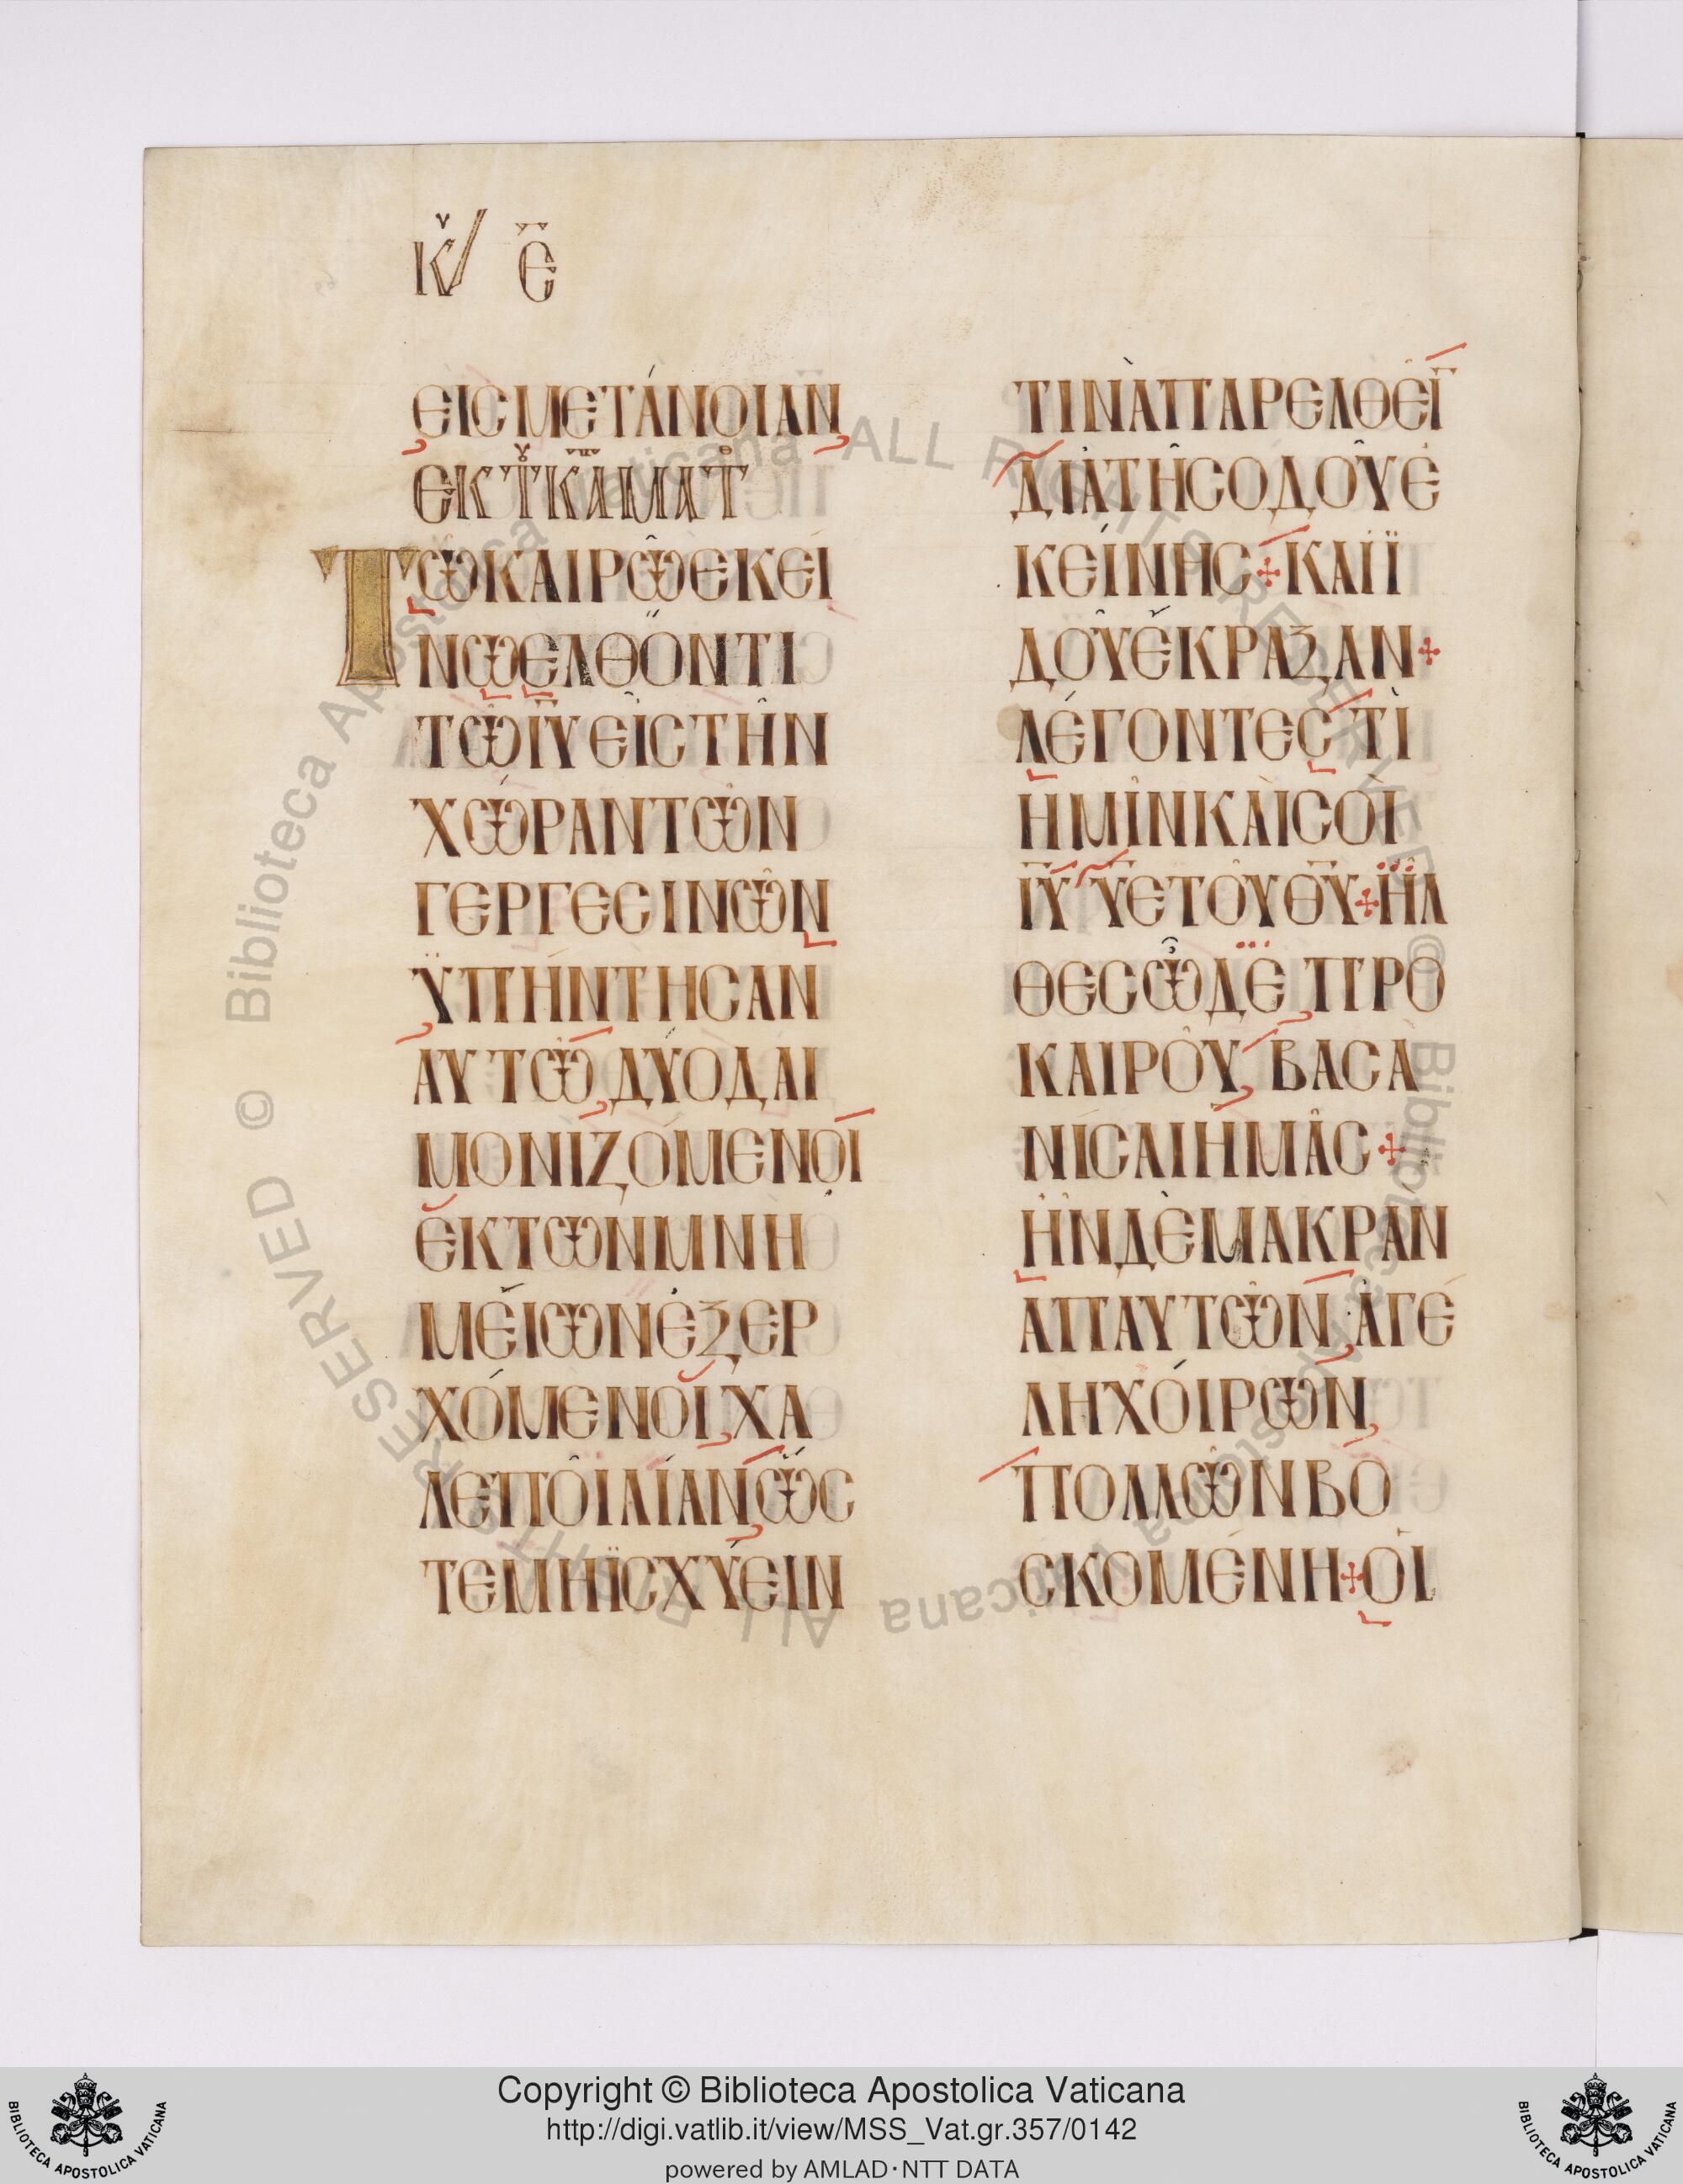 Κυ Ε
ΕΙϹΜΕΤΆΝΟΙΑΝ
ΕΚ Τ ΚΑΤΑ ΜΑΤ
ΤῶΚΑΙΡῶΕΚΕΙ
ΝωΕΛΘΌΝΤΙ
ΤῶΙΥΕΙϹΤῊΝ
ΧώΡΑΝΤῶΝ
ΓΕΡΓΕϹΙΝῶΝ
ΫΠΉΝΤΗϹΑΝ
ΑΥΤῶ,ΔΎΟΔΑΙ
ΜΟΝΙΖΌΜΕΝΟΙ
ΕΚΤωΝΜΝΗ
ΜΕΊωΝἘΞΕΡ
ΧΌΜΕΝΟΙ,ΧΑ
ΛΕΠΟῚΛΊΑΝ,ὥϹ
ΤΕΜΗΪϹΧΎΕΙΝ
ΤΙΝᾺΠΑΡΕΛΘΕΙ͂
ΔΙᾺΤΗ͂ϹΟΔΟΥ͂Ἐ
ΚΕΊΝΗϹ⁘ΚΑΙΪ
ΔΟΥ͂ἜΚΡΑΞΑΝ⁘
ΛΈΓΟΝΤΕϹ,ΤῚ
ΗΜΙ͂ΝΚΑῚϹΟῚ
ΙΥ ΥΕΤΟΥ͂ΘΥ⁘ΗΛ
ΘΕϹὧΔΕ,ΠΡΟ
ΚΑΙΡΟΥ͂,ΒΑϹΑ
ΝΊϹΑΙΗΜΑ͂Ϲ⁘
ἮΝΔῈΜΑΚΡᾺΝ
ΑΠΑΥΤῶΝ,ἈΓΈ
ΛΗΧΟΊΡωΝ,
ΠΟΛΛῶΝΒΟ
ϹΚΟΜΈΝΗ⁘ΟΙ
Biblioteca Apostolica Vaticana ALL RIGHTS RESERVED ©
Copyright © Biblioteca Apostolica Vaticana
http://digi.vatlib.it/view/MSS_Vat.gr.357/0142
powered by AMLAD・NTT DATA
BIBLIOTECA APOSTOLICA VATICANA
BIBLIOTECA APOSTOLICA VATICANA